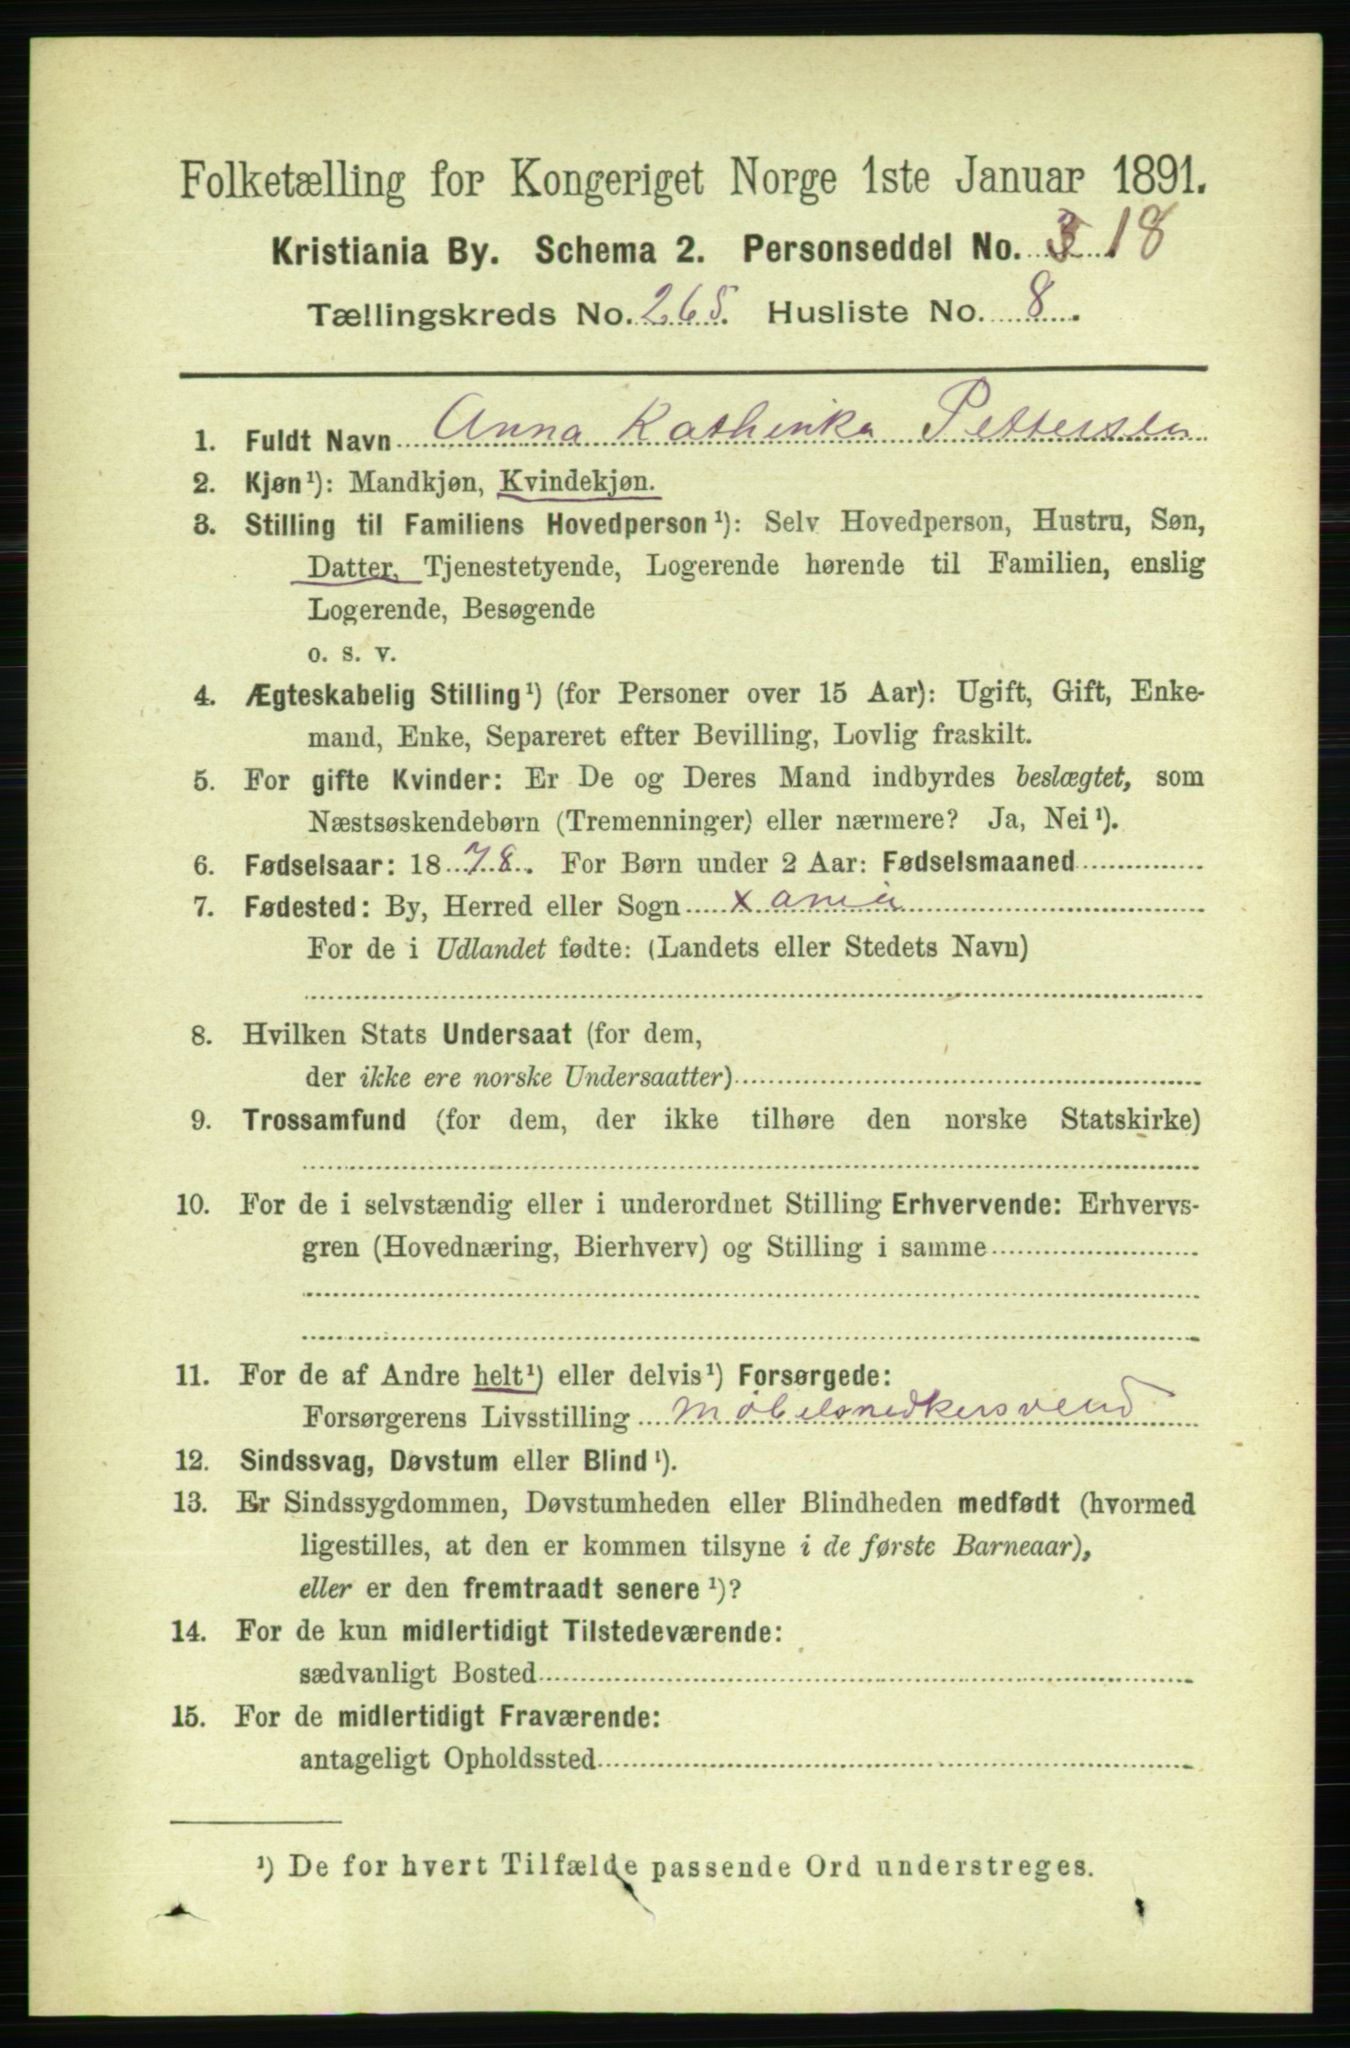 Folketælling for Kongeriget Norge 1ste Januar 1891.
Kristiania By. Schema 2. Personseddel No. 18
Tællingskreds No. 265. Husliste No. 8.
1. Fuldt Navn Anna Kathinka Pettersen
2. Kjøn¹): Mandkjøn, Kvindekjøn.
3. Stilling til Familiens Hovedperson¹): Selv Hovedperson, Hustru, Søn,
Datter, Tjenestetyende, Logerende hørende til Familien, enslig
Logerende, Besøgende
o. s. v.
4. Ægteskabelig Stilling¹) (for Personer over 15 Aar): Ugift, Gift, Enke-
mand, Enke, Separeret efter Bevilling, Lovlig fraskilt.
5. For gifte Kvinder: Er De og Deres Mand indbyrdes beslægtet, som
Næstsøskendebørn (Tremenninger) eller nærmere? Ja, Nei¹).
6. Fødselsaar: 1878. For Børn under 2 Aar: Fødselsmaaned
7. Fødested: By, Herred eller Sogn xania
For de i Udlandet fødte: (Landets eller Stedets Navn)
8. Hvilken Stats Undersaat (for dem,
der ikke ere norske Undersaatter)
9. Trossamfund (for dem, der ikke tilhøre den norske Statskirke)
10. For de i selvstændig eller i underordnet Stilling Erhvervende: Erhvervs-
gren (Hovednæring, Bierhverv) og Stilling i samme
11. For de af Andre helt¹) eller delvis¹) Forsørgede:
Forsørgerens Livsstilling Møbelsnedkersvend
12. Sindssvag, Døvstum eller Blind¹).
13. Er Sindssygdommen, Døvstumheden eller Blindheden medfødt (hvormed
ligestilles, at den er kommen tilsyne i de første Barneaar),
eller er den fremtraadt senere¹)?
14. For de kun midlertidigt Tilstedeværende:
sædvanligt Bosted
15. For de midlertidigt Fraværende:
antageligt Opholdssted
¹) De for hvert Tilfælde passende Ord understreges.